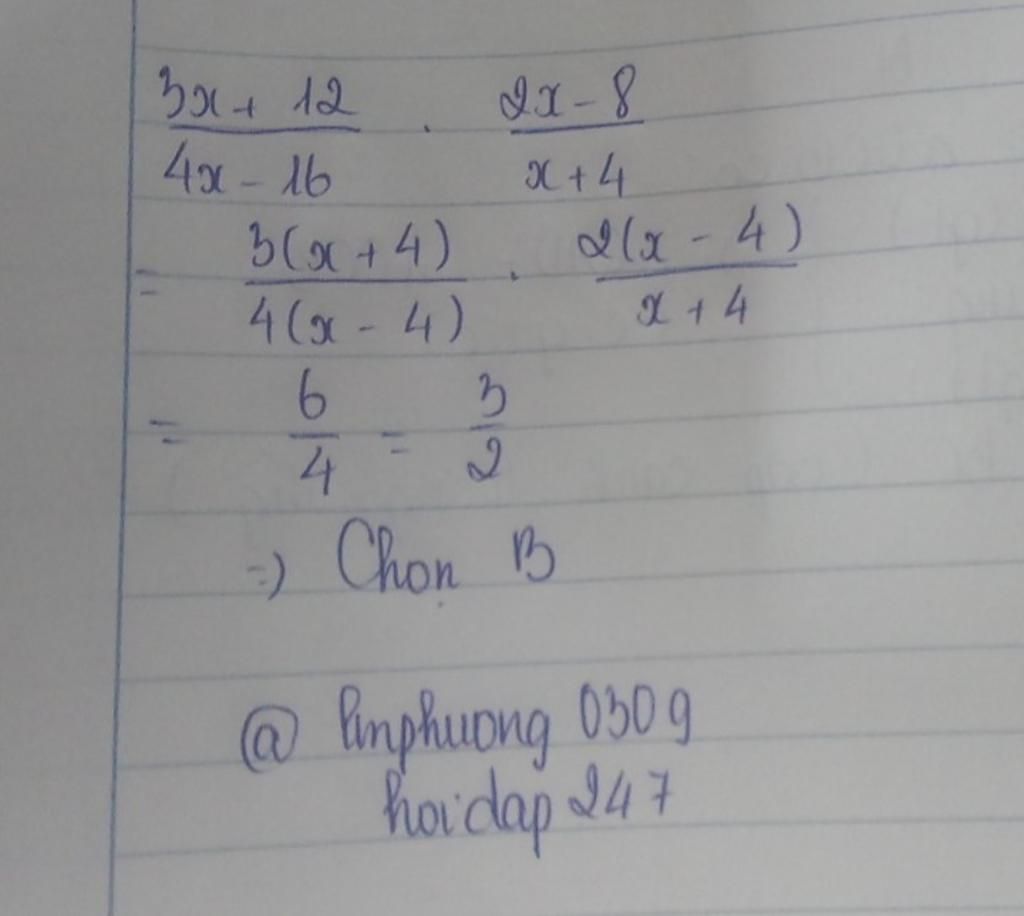 3x + 12 / 4x - 16 . 2x - 8 / x + 4
= 3(x + 4) / 4(x - 4) . 2(x - 4) / x + 4
= 6 / 4 = 3 / 2
=) Chọn B
@ linphuong 0309
hoidap 247